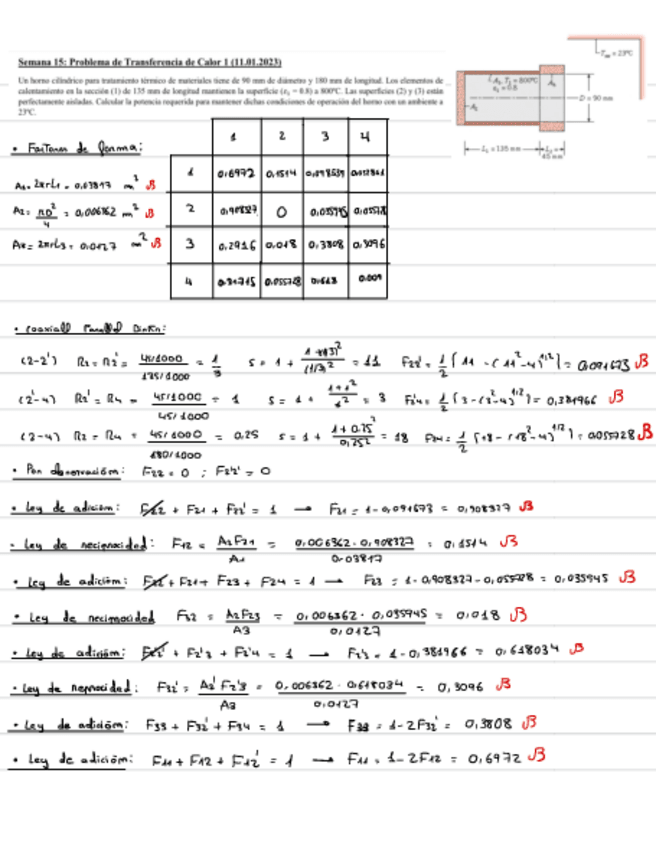 Semana 15: Problema de Transferencia de Calor 1 (11.01.2023)
Un horno cilíndrico para tratamiento térmico de materiales tiene de 90 mm de diámetro y 180 mm de longitud. Los elementos de
calentamiento en la sección (1) de 135 mm de longitud mantienen la superficie (ε₁ = 0.8) a 800ºC. Las superficies (2) y (3) están
perfectamente aisladas. Calcular la potencia requerida para mantener dichas condiciones de operación del horno con un ambiente a
23ºC.
T∞ = 23ºC
A₁, T₁ = 800ºC
ε₁ = 0.8
A₃
A₂
D = 90 mm
L₁ = 135 mm
L₃ =
45 mm
• Factores de forma:
A₁ = 2πrL₁ = 0,03817 m²
A₂ = πD²/4 = 0,006362 m²
A₃ = 2πrL₃ = 0,0127 m²
1 2 3 4
1 0,6972 0,1514
2 0,908327 0 0,035945 0,055728
3 0,2916 0,018 0,3808 0,3096
4 0,055728 0,618
• coaxial Parallel
(2-2') R₂ = R₂' = 45/1000 / 135/1000 = 1/3 S = 1 + 1+(1/3)² / (1/3)² = 11 F₂₂' = 1/2 [11 - (11²-4)^1/2] = 0,091673
(2'-4) R₂' = R₄ = 45/1000 / 45/1000 = 1 S = 1 + 1+1² / 1² = 3 F₂'₄ = 1/2 [3-(3²-4)^1/2] = 0,381966
(2-4) R₂ = R₄ = 45/1000 / 180/1000 = 0,25 S = 1 + 1+0,25² / 0,25² = 18 F₂₄ = 1/2 [18-(18²-4)^1/2] = 0,055728
• Por observación: F₂₂ = 0 ; F₂'₂' = 0
• Ley de adición: F₂₂ + F₂₁ + F₂₂' = 1 → F₂₁ = 1-0,091673 = 0,908327
• Ley de reciprocidad: F₁₂ = A₂F₂₁ / A₁ = 0,006362 · 0,908327 / 0,03817 = 0,1514
• Ley de adición: F₂₂ + F₂₁ + F₂₃ + F₂₄ = 1 → F₂₃ = 1-0,908327-0,055728 = 0,035945
• Ley de reciprocidad F₃₂ = A₂F₂₃ / A₃ = 0,006362 · 0,035945 / 0,0127 = 0,018
• Ley de adición: F₂'₂' + F₂'₃ + F₂'₄ = 1 → F₂'₃ = 1-0,381966 = 0,618034
• Ley de reciprocidad: F₃₂' = A₂'F₂'₃ / A₃ = 0,006362 · 0,618034 / 0,0127 = 0,3096
• Ley de adición: F₃₃ + F₃₂' + F₃₄ = 1 → F₃₃ = 1-2F₃₂' = 0,3808
• Ley de adición: F₁₁ + F₁₂ + F₁₂' = 1 → F₁₁ = 1-2F₁₂ = 0,6972